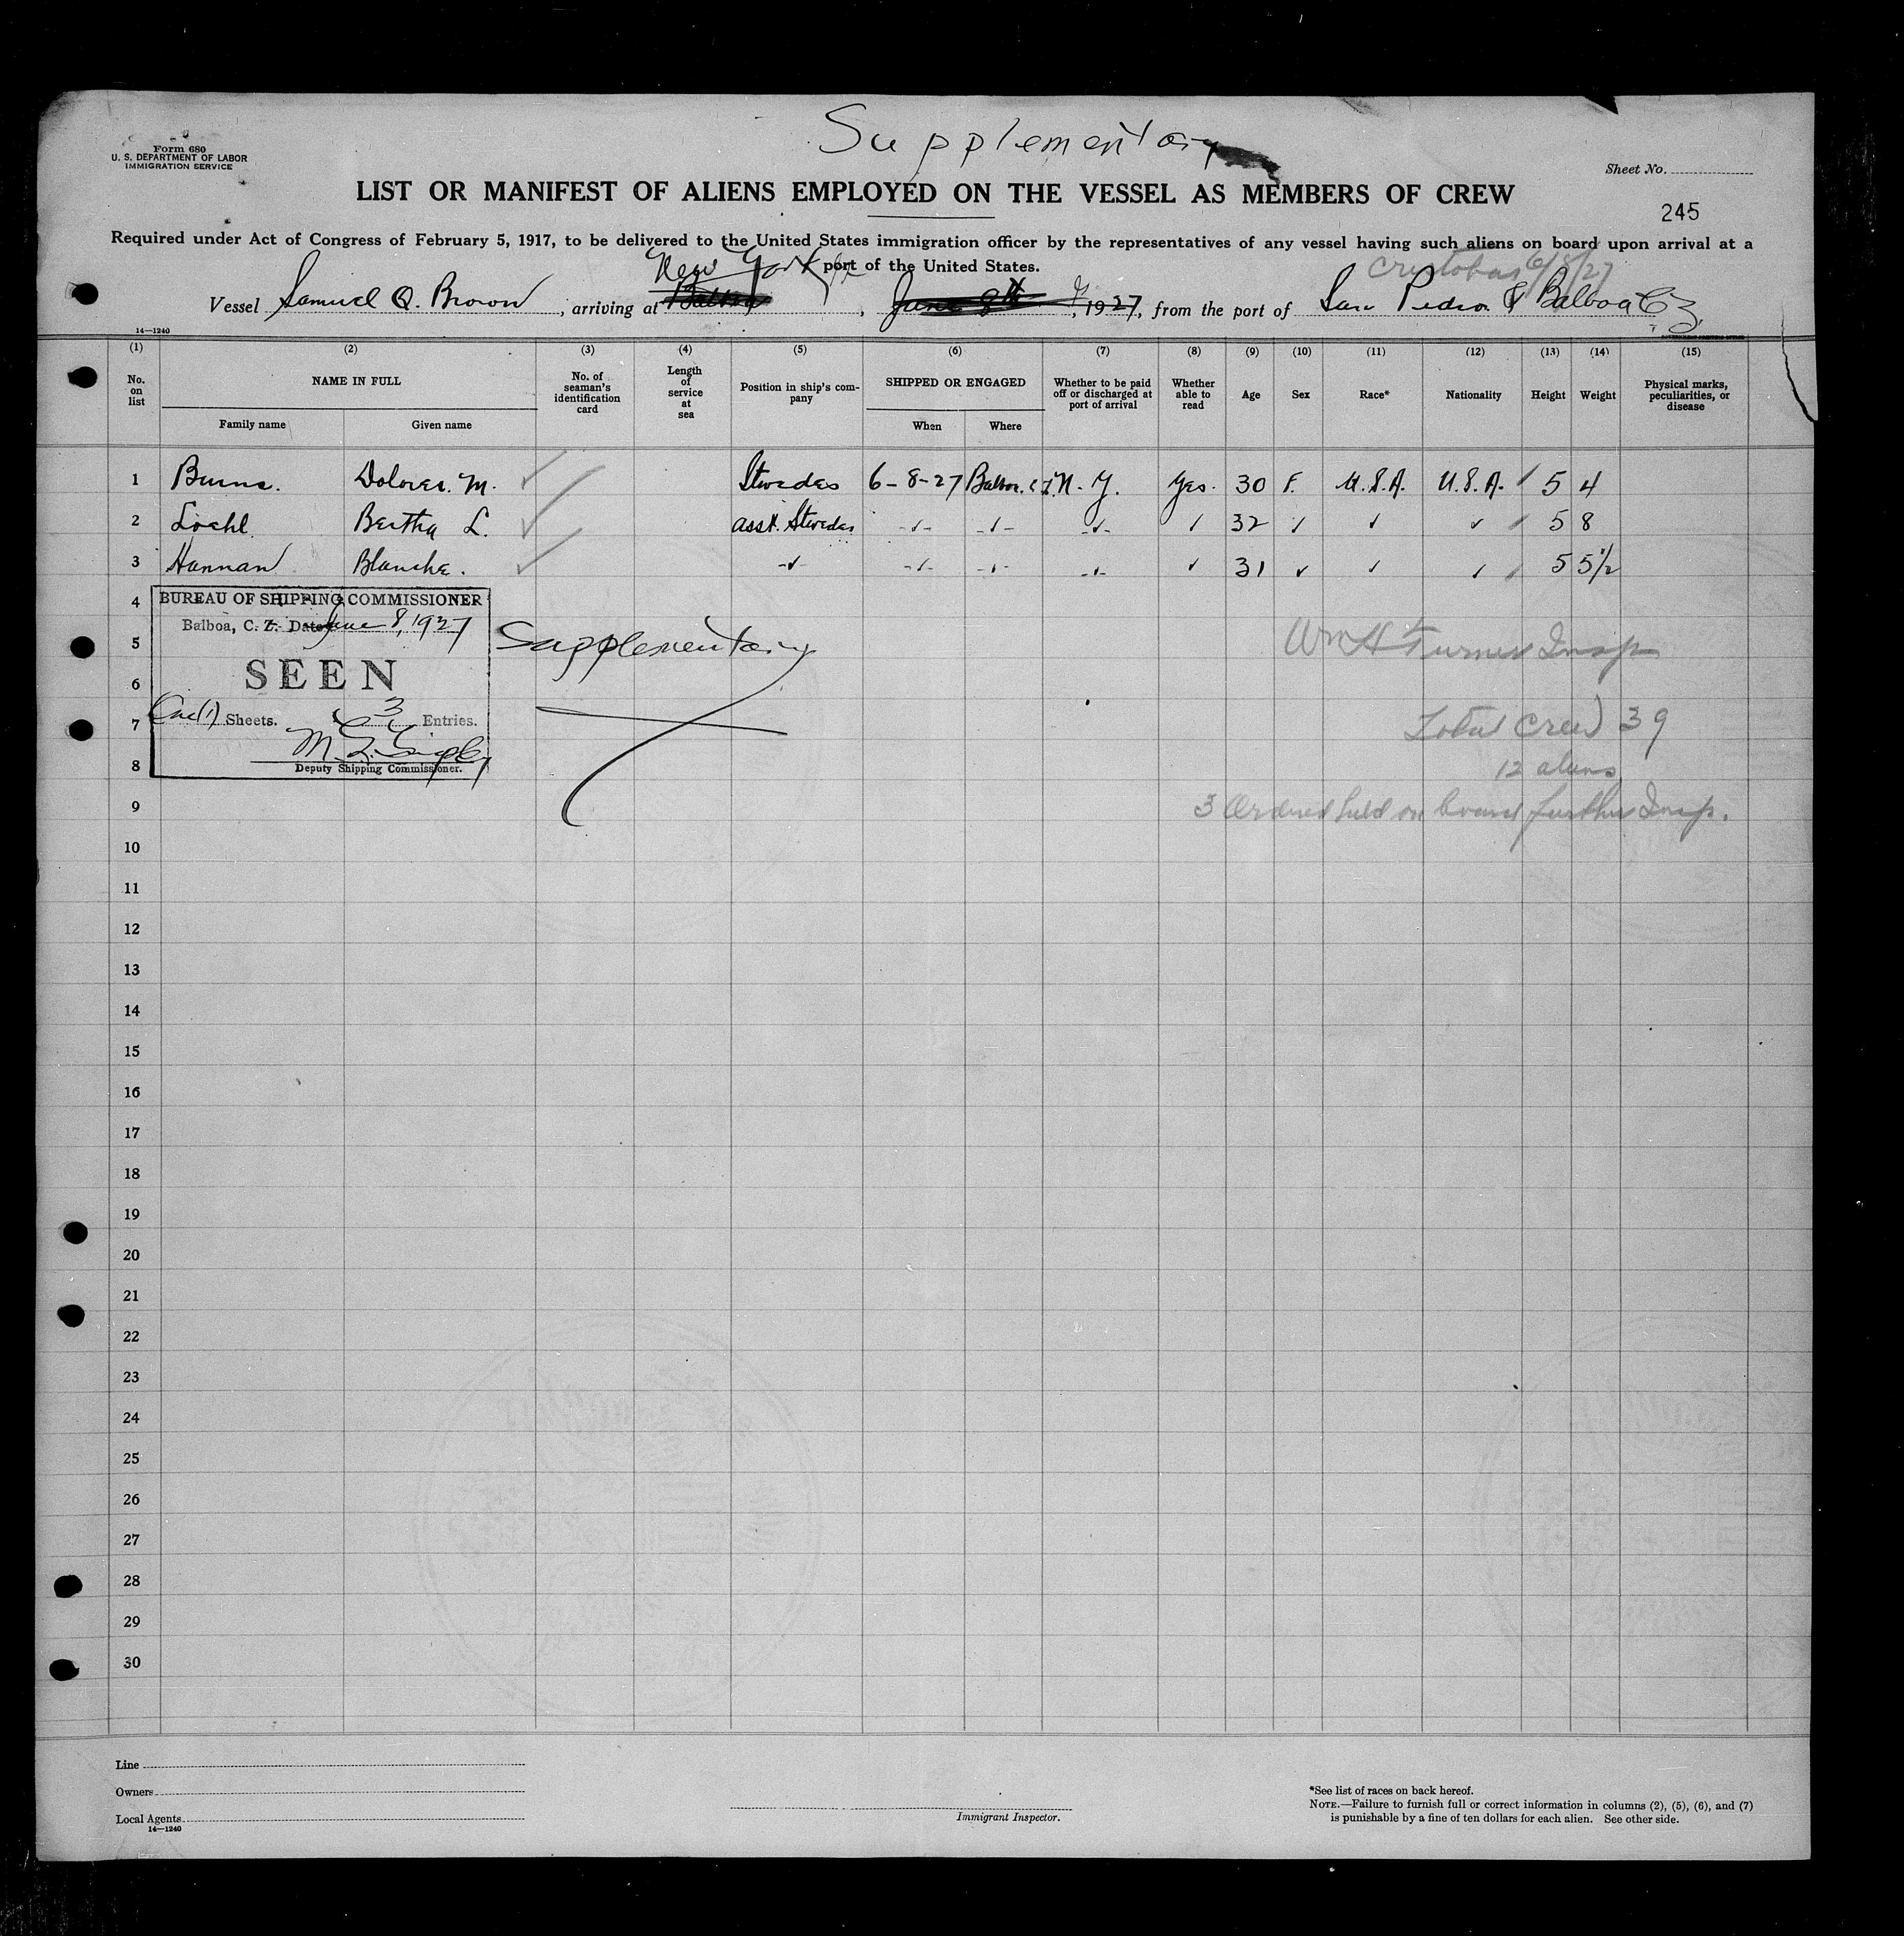 Supplementary
Form 680
U. S. DEPARTMENT OF LABOR
IMMIGRATION SERVICE
Sheet No.
LIST OR MANIFEST OF ALIENS EMPLOYED ON THE VESSEL AS MEMBERS OF CREW
245
Required under Act of Congress of February 5, 1917, to be delivered to the United States immigration officer by the representatives of any vessel having such aliens on board upon arrival at a
port of the United States.
New York
Cristobal 6/8/27
Vessel Samuel Q. Brown, arriving at Balboa, June 8th, 1927, from the port of San Pedro & Balboa CZ.
14—1240
(1) (2) (3) (4) (5) (6) (7) (8) (9) (10) (11) (12) (13) (14) (15)
No. on list
NAME IN FULL
Family name
Given name
No. of seaman's identification card
Length of service at sea
Position in ship's company
SHIPPED OR ENGAGED
When
Where
Whether to be paid off or discharged at port of arrival
Whether able to read
Age
Sex
Race*
Nationality
Height
Weight
Physical marks, peculiarities, or disease
1 Burns. Dolores. M. ✓ Stwrdes 6-8-27 Balboa. C.Z. N. Y. Yes. 30 F. U.S.A. U.S.A. 5 4
2 Bertha L. ✓ asst. Stwrdes -✓- -✓- -✓- ✓ 32 ✓ ✓ ✓ 5 8
3 Hannan Blanche. ✓ -✓- -✓- -✓- -✓- ✓ 31 ✓ ✓ ✓ 5 5½
4
BUREAU OF SHIPPING COMMISSIONER
Balboa, C. Z. Date June 8, 1927
5
Supplementary
Wm H Turner Insp
6
SEEN
7
One (1) Sheets. 3 Entries.
Total Crew 39
8
Deputy Shipping Commissioner.
12 aliens
9
3 Ordered held on board further Insp.
10
11
12
13
14
15
16
17
18
19
20
21
22
23
24
25
26
27
28
29
30
Line
Owners
Local Agents
14—1240
Immigrant Inspector.
*See list of races on back hereof.
NOTE.—Failure to furnish full or correct information in columns (2), (5), (6), and (7)
is punishable by a fine of ten dollars for each alien. See other side.